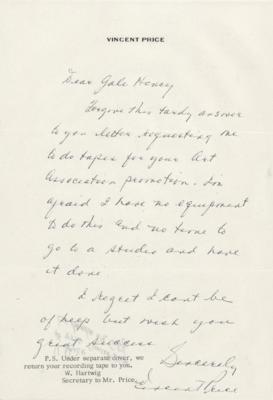 VINCENT PRICE
Dear Gale Honey
Forgive this tardy answer
to you letter requesting me
to do tapes for your Art
Association promotion. I'm
afraid I have no equipment
to do this and no time to
go to a studio and have
it done.
I regret I cant be
of help but wish you
great success
Sincerely
Vincent Price
P.S. Under separate cover, we
return your recording tape to you.
W. Hartwig
Secretary to Mr. Price.